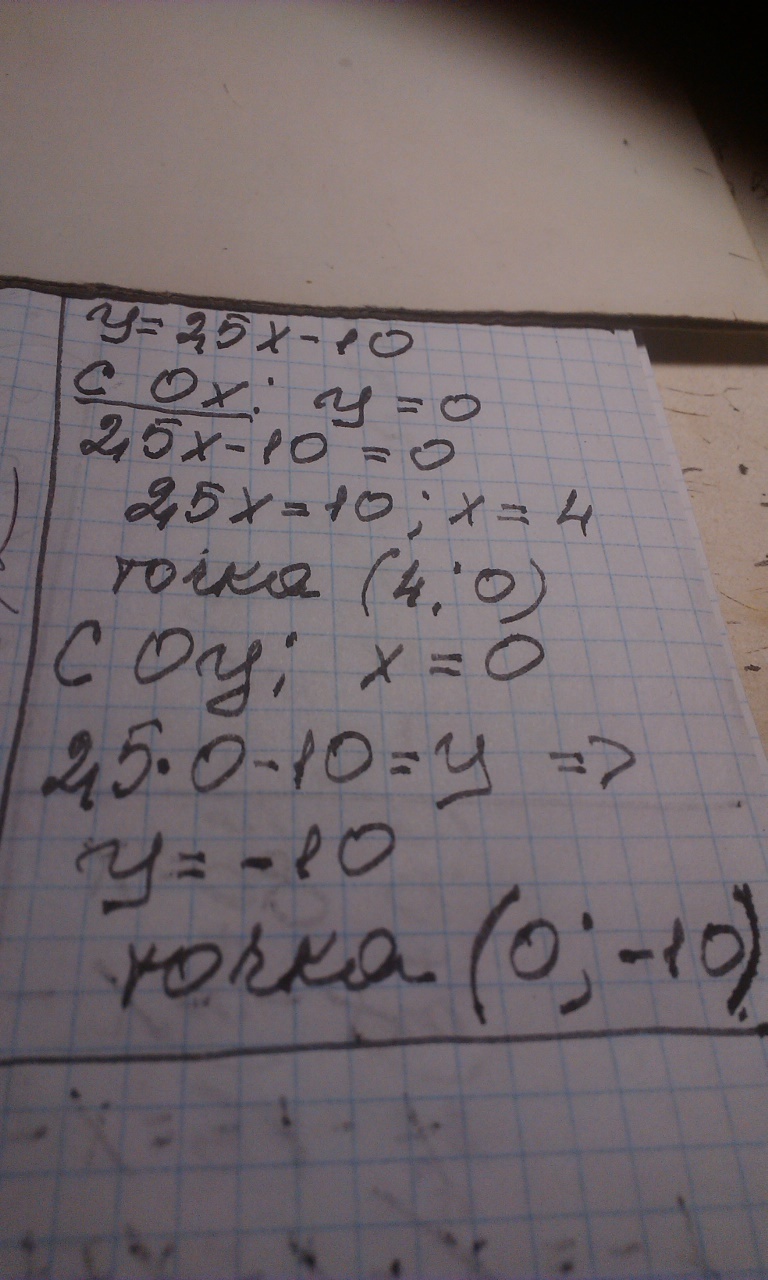 y = 2,5x - 10
С Ох: y = 0
2,5x - 10 = 0
2,5x = 10; x = 4
точка (4; 0)
С Оу; x = 0
2,5·0 - 10 = y =>
y = -10
точка (0; -10).